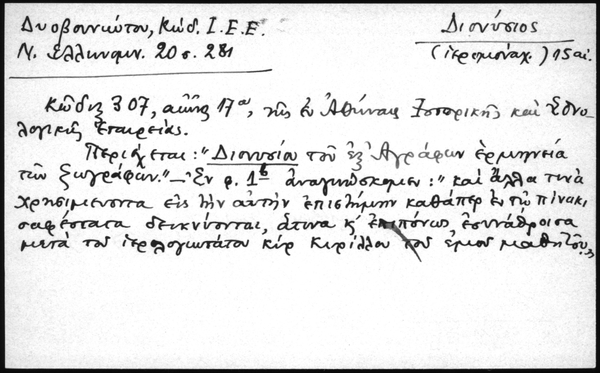 Δυοβουνιώτου, Κώδ. Ι.Ε.Ε.
Ν. Ἑλληνομν. 20 σ. 281
Διονύσιος
(ἱερομόναχ.) 15 αἰ.
Κῶδιξ 307, αἰῶνος 17ου, τῆς ἐν Ἀθήναις Ἱστορικῆς καὶ Ἐθνο-
λογικῆς Ἑταιρείας.
Περιέχεται: "Διονυσίου τοῦ ἐξ Ἀγράφων ἑρμηνεία
τῶν ζωγράφων." – Ἐν φ. 1β ἀναγινώσκομεν: "καὶ ἄλλα τινὰ
χρησιμεύοντα εἰς τὴν αὐτὴν ἐπιστήμην καθάπερ ἐν τῷ πίνακι
σαφέστατα δεικνύονται, ἅτινα κ' ἐπιπόνως ἐσυνάθροισα
μετὰ τοῦ ἱερολογιωτάτου κὺρ Κυρίλλου τοῦ ἐμοῦ μαθητοῦ"